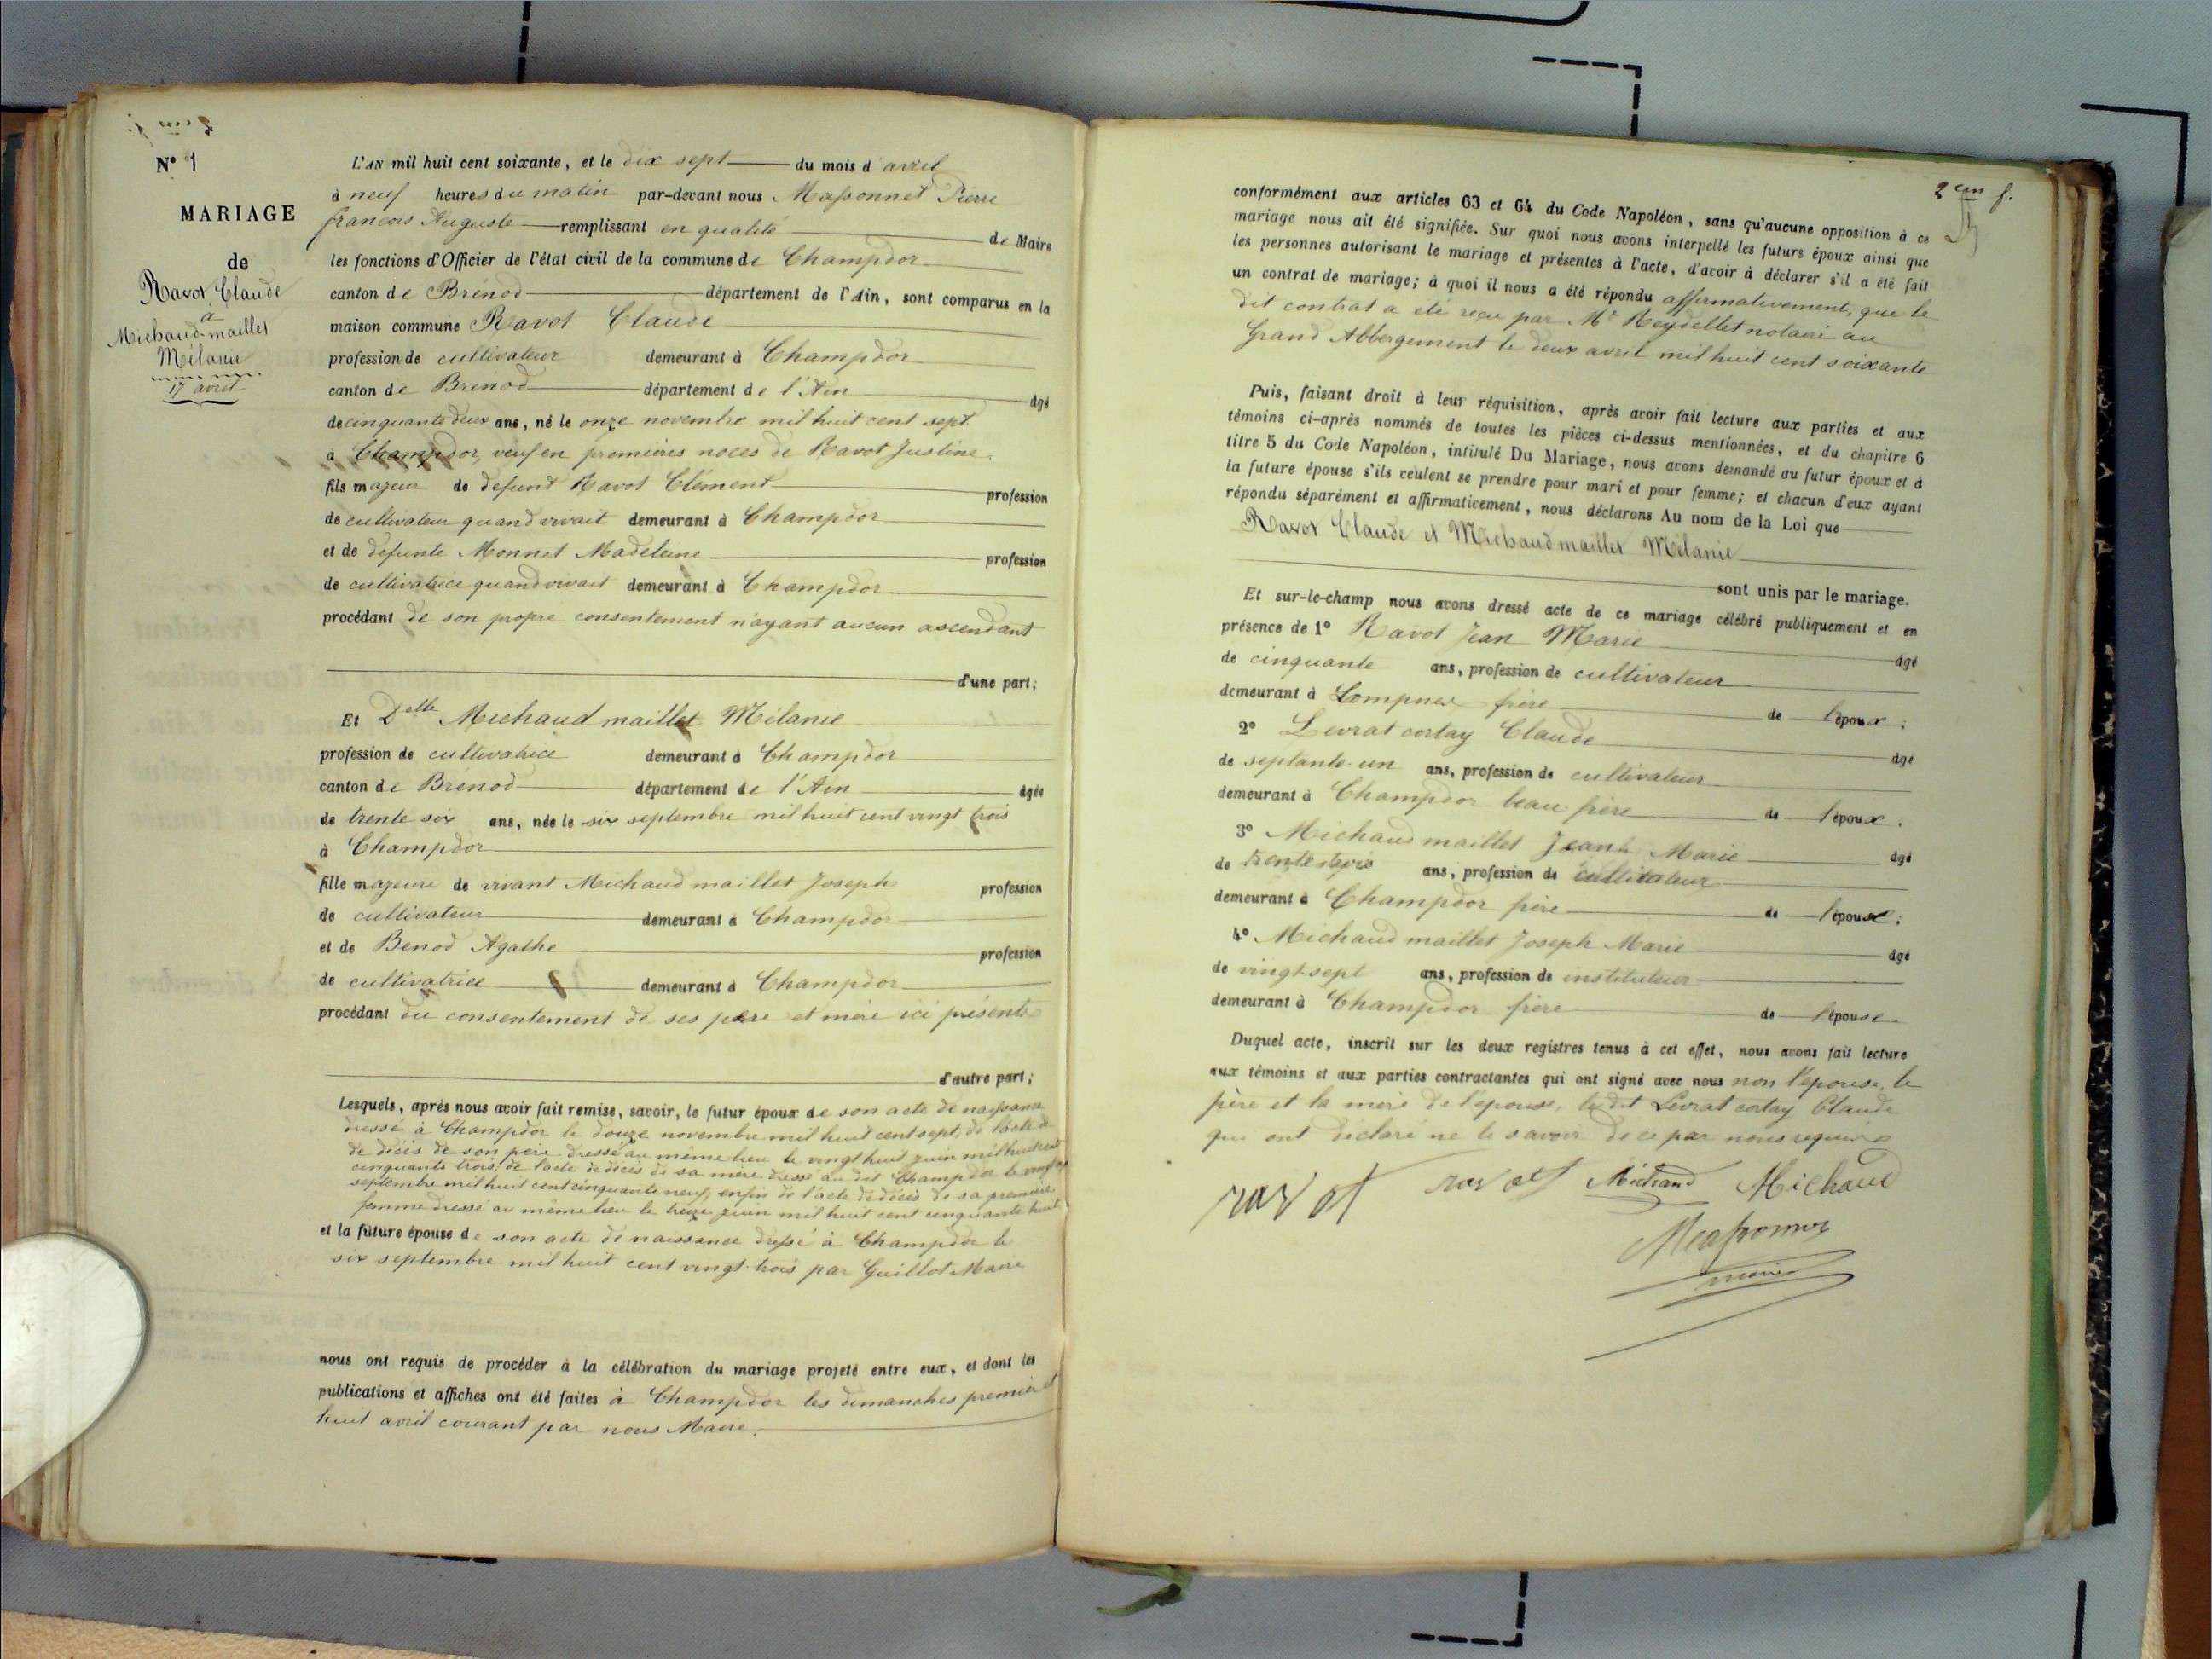 N° 1
MARIAGE
de
Ravot Claude
a
Michaud-maillet
Mélanie
17 avril
L'AN mil huit cent soixante, et le dix sept du mois d'avril
à neuf heures du matin par-devant nous Massonnet Pierre
françois Auguste remplissant en qualité de Maire
les fonctions d'Officier de l'état civil de la commune de Champdor
canton de Brénod département de l'Ain, sont comparus en la
maison commune Ravot Claude
profession de cultivateur demeurant à Champdor
canton de Brénod département de l'Ain âgé
de cinquante deux ans, né le onze novembre mil huit cent sept
à Champdor, veuf en premières noces de Ravot Justine
fils majeur de defunt Ravot Clément profession
de cultivateur quand vivait demeurant à Champdor
et de defunte Monnet Madeleine profession
de cultivatrice quand vivait demeurant à Champdor
procédant de son propre consentement n'ayant aucun ascendant
d'une part;
Et Delle Michaud maillet Mélanie
profession de cultivatrice demeurant à Champdor
canton de Brénod département de l'Ain âgée
de trente six ans, née le six septembre mil huit cent vingt trois
à Champdor
fille majeure de vivant Michaud maillet Joseph profession
de cultivateur demeurant à Champdor
et de Benod Agathe profession
de cultivatrice demeurant à Champdor
procédant du consentement de ses père et mère ici présents
d'autre part;
Lesquels, après nous avoir fait remise, savoir, le futur époux de son acte de naissance
dressé à Champdor le douze novembre mil huit cent sept, de l'acte
de décès de son père dressé au même lieu le vingt huit juin mil huit cent
cinquante trois, de l'acte de décès de sa mère dressé au dit Champdor le vingt
septembre mil huit cent cinquante neuf, enfin de l'acte de décès de sa première
femme dressé au même lieu le treize juin mil huit cent cinquante huit
et la future épouse de son acte de naissance dressé à Champdor le
six septembre mil huit cent vingt-trois par Guillot Maire
nous ont requis de procéder à la célébration du mariage projeté entre eux, et dont les
publications et affiches ont été faites à Champdor les dimanches premier et
huit avril courant par nous Maire.
2
conformément aux articles 63 et 64 du Code Napoléon, sans qu'aucune opposition à ce
mariage nous ait été signifiée. Sur quoi nous avons interpellé les futurs époux ainsi que
les personnes autorisant le mariage et présentes à l'acte, d'avoir à déclarer s'il a été fait
un contrat de mariage; à quoi il nous a été répondu affirmativement, que le
dit contrat a été reçu par Me Reydellet notaire au
Grand Abbergement le deux avril mil huit cent soixante
Puis, faisant droit à leur réquisition, après avoir fait lecture aux parties et aux
témoins ci-après nommés de toutes les pièces ci-dessus mentionnées, et du chapitre 6
titre 5 du Code Napoléon, intitulé Du Mariage, nous avons demandé au futur époux et à
la future épouse s'ils veulent se prendre pour mari et pour femme; et chacun d'eux ayant
répondu séparément et affirmativement, nous déclarons Au nom de la Loi que
Ravot Claude et Michaud maillet Mélanie
sont unis par le mariage.
Et sur-le-champ nous avons dressé acte de ce mariage célébré publiquement et en
présence de 1° Ravot Jean Marie âgé
de cinquante ans, profession de cultivateur
demeurant à Lompnes frère de l'époux;
2° Levrat cortay Claude âgé
de septante un ans, profession de cultivateur
demeurant à Champdor beau frère de l'époux.
3° Michaud maillet Jean Marie âgé
de trente trois ans, profession de cultivateur
demeurant à Champdor frère de l'épouse;
4° Michaud maillet Joseph Marie âgé
de vingt-sept ans, profession de instituteur
demeurant à Champdor frère de l'épouse.
Duquel acte, inscrit sur les deux registres tenus à cet effet, nous avons fait lecture
aux témoins et aux parties contractantes qui ont signé avec nous non l'épouse, le
père et la mère de l'épouse, le dit Levrat cortay Claude
qui ont déclaré ne le savoir de ce par nous requis
ravot ravot Michaud Michaud
Massonnet
maire